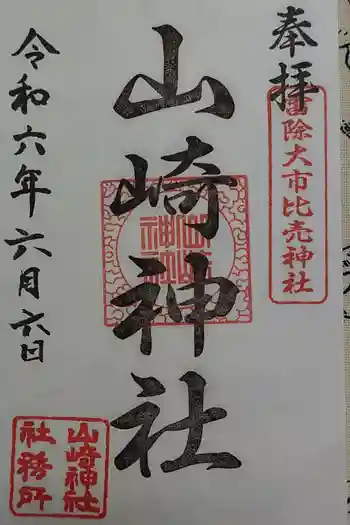 奉拝
雷除大市比売神社
山崎神社
山崎神社
令和六年六月六日
山崎神社
社務所